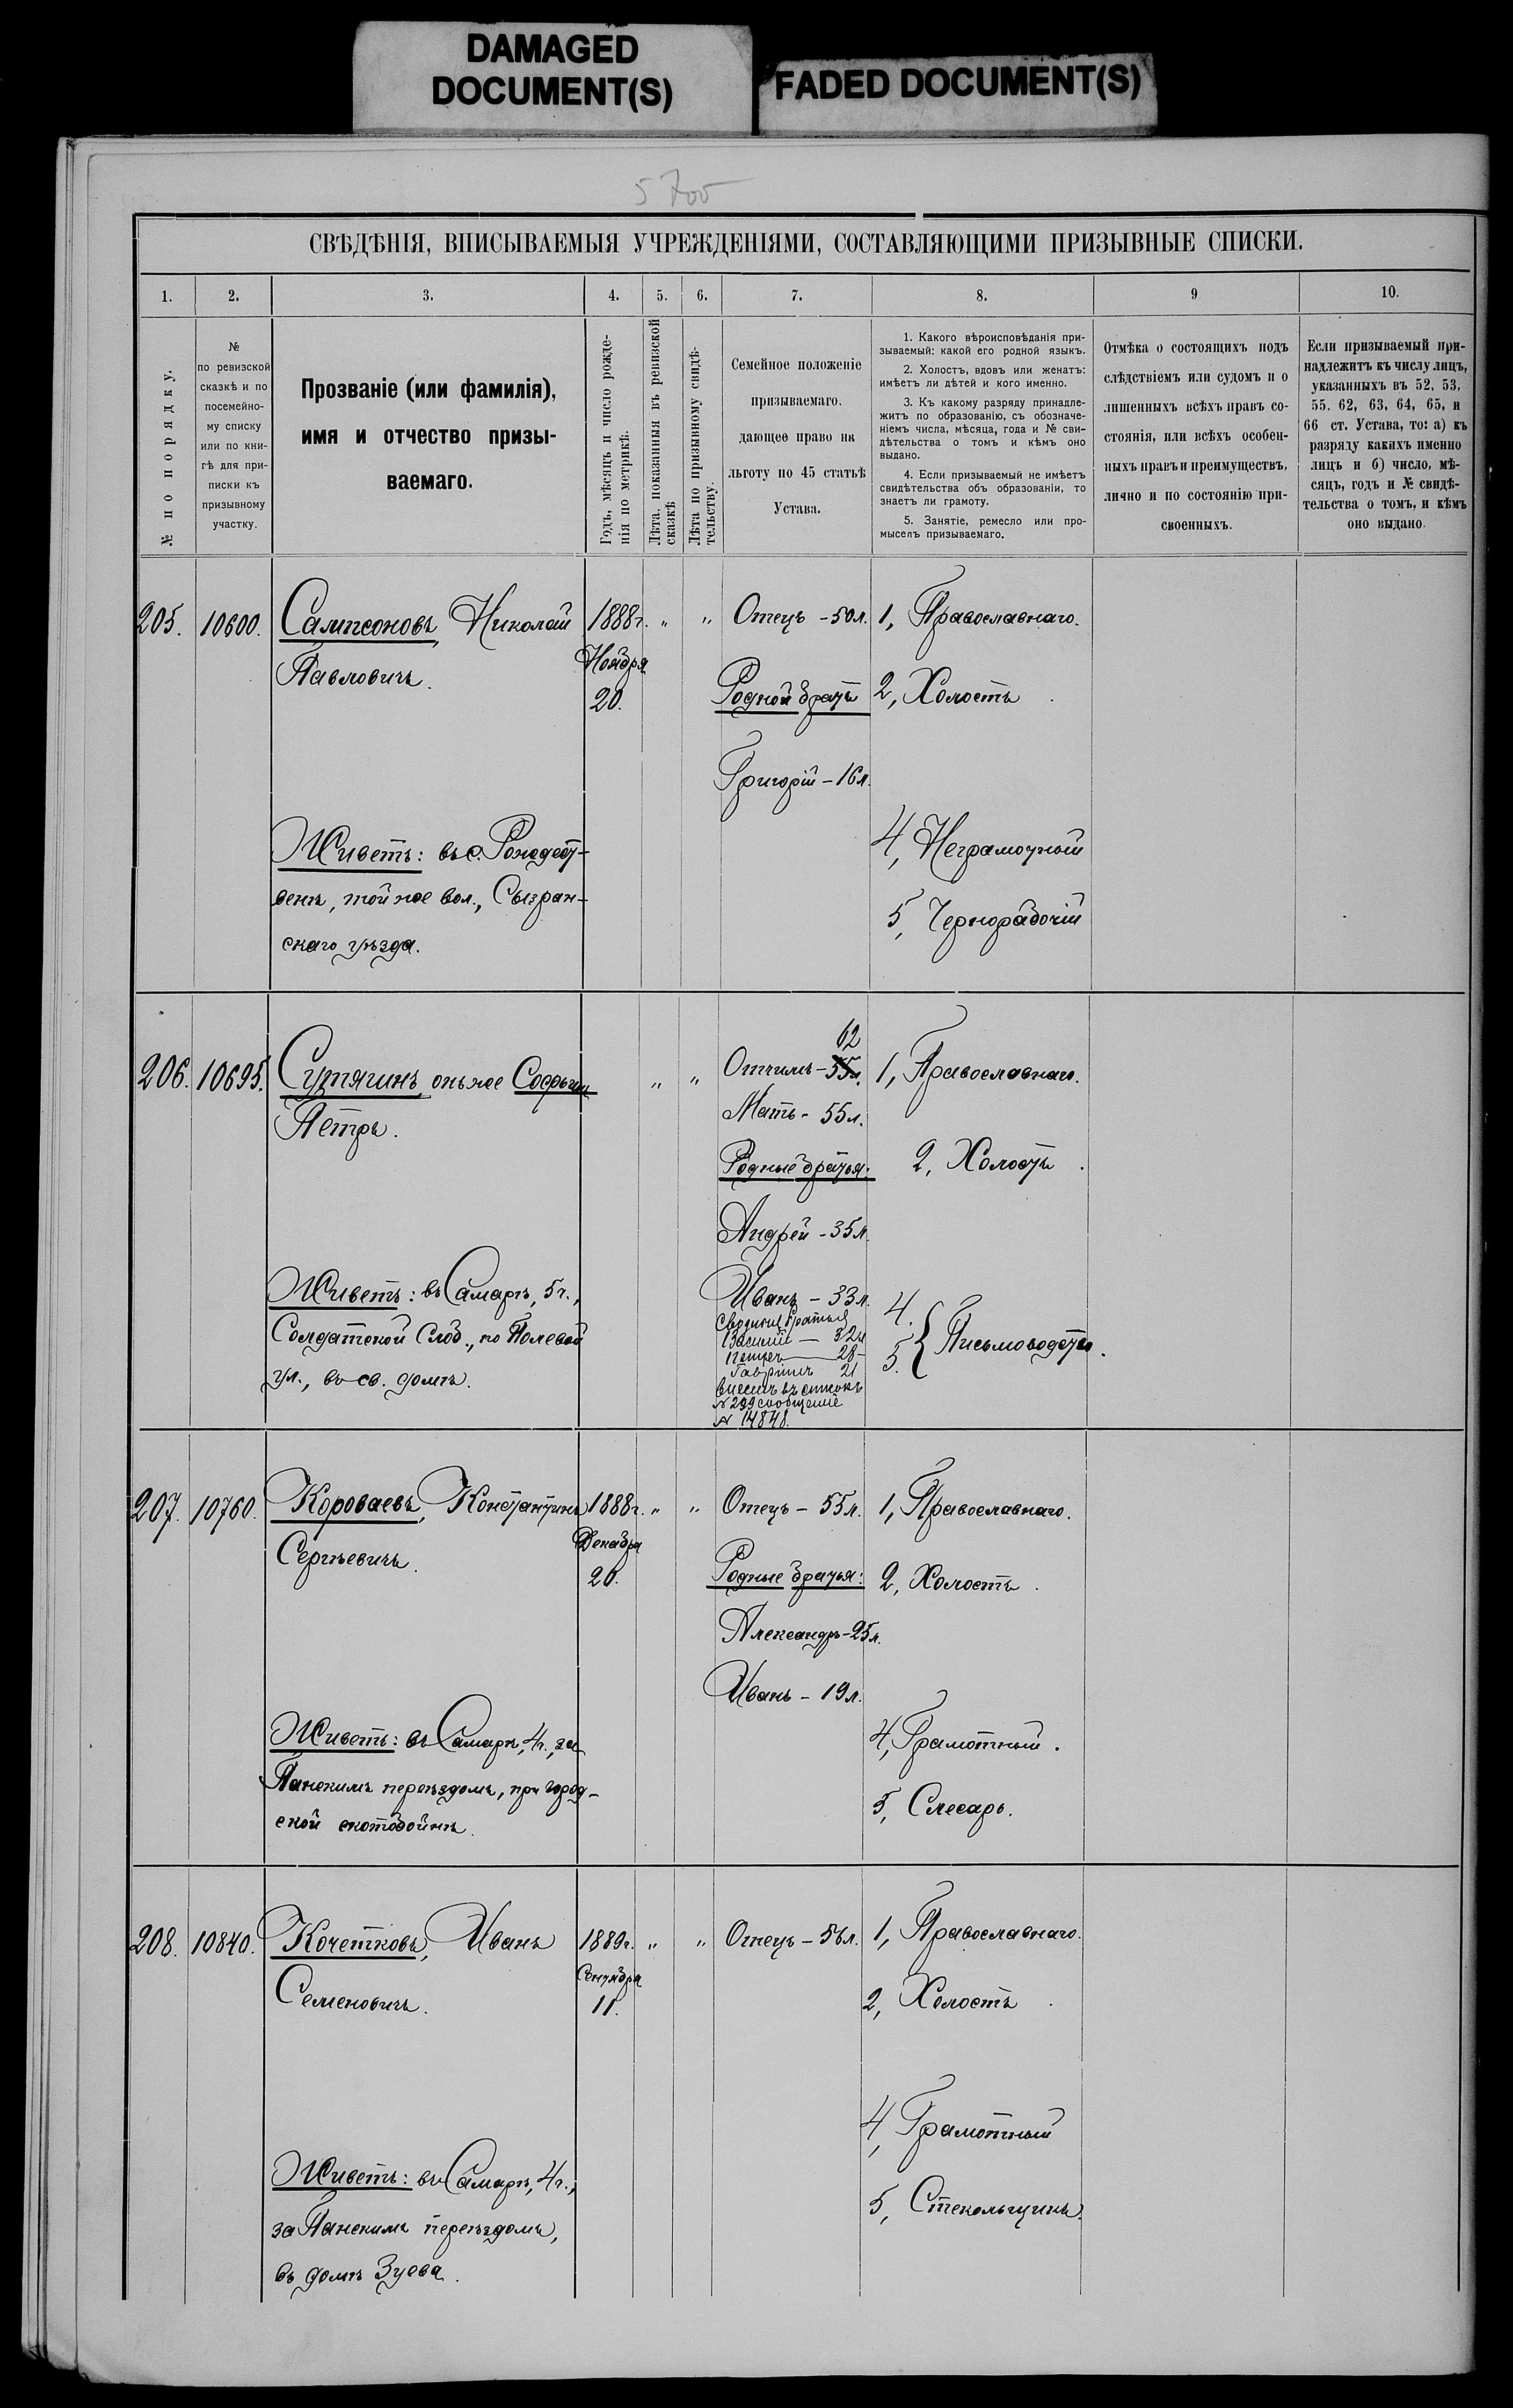 DAMAGED
DOCUMENT(S)
FADED DOCUMENT(S)
5700
СВѢДѢНІЯ, ВПИСЫВАЕМЫЯ УЧРЕЖДЕНІЯМИ, СОСТАВЛЯЮЩИМИ ПРИЗЫВНЫЕ СПИСКИ.
1.
2.
3.
4.
5.
6.
7.
8.
9
10.
№ по порядку.
№
по ревизской
сказкѣ и по
посемейно-
му списку
или по кни-
гѣ для при-
писки къ
призывному
участку.
Прозваніе (или фамилія),
имя и отчество призы-
ваемаго.
Годъ, мѣсяцъ и число рожде-
нія по метрикѣ.
Лѣта, показанныя въ ревизской
сказкѣ
Лѣта по призывному свидѣ-
тельству.
Семейное положеніе
призываемаго,
дающее право на
льготу по 45 статьѣ
Устава.
1. Какого вѣроисповѣданія при-
зываемый: какой его родной языкъ.
2. Холостъ, вдовъ или женатъ:
имѣетъ ли дѣтей и кого именно.
3. Къ какому разряду принадле-
житъ по образованію, съ обозначе-
ніемъ числа, мѣсяца, года и № сви-
дѣтельства о томъ и кѣмъ оно
выдано.
4. Если призываемый не имѣетъ
свидѣтельства объ образованіи, то
знаетъ ли грамоту.
5. Занятіе, ремесло или про-
мыселъ призываемаго.
Отмѣка о состоящихъ подъ
слѣдствіемъ или судомъ и о
лишенныхъ всѣхъ правъ со-
стоянія, или всѣхъ особен-
ныхъ правъ и преимуществъ,
лично и по состоянію при-
своенныхъ.
Если призываемый при-
надлежитъ къ числу лицъ,
указанныхъ въ 52, 53,
55. 62, 63, 64, 65, и
66 ст. Устава, то: а) къ
разряду какихъ именно
лицъ и б) число, мѣ-
сяцъ, годъ и № свидѣ-
тельства о томъ, и кѣмъ
оно выдано.
205.
10600.
Сампсоновъ, Николай
Павловичъ.
Живетъ: въ с. Рождест-
венѣ, той же вол., Сызран-
скаго уѣзда.
1888г.
Ноября
20.
"
"
Отецъ - 50л.
Родной братъ
Григорій - 16л.
1, Православнаго.
2, Холостъ.
4, Неграмотный
5, Чернорабочій
206.
10695.
Сутягинъ, онъ же
Петръ.
Живетъ: въ Самарѣ, 5ч.,
Солдатской Слоб., по Полевой
ул., въ св. домѣ.
"
"
62
Отчимъ - 55л.
Мать - 55л.
Родные братья:
Андрей - 35л.
Иванъ - 33л.
Сводные братья
Василій — 32л
28-
Гавріилъ 21
внесенъ въ списокъ
№ 299 сообщеніе
№ 14848.
1, Православнаго.
2, Холостъ.
4.
5. } Письмоводство.
207.
10760.
Короваевъ, Константинъ
Сергѣевичъ.
Живетъ: въ Самарѣ, 4ч., за
Панскимъ переѣздомъ, при город-
ской скотобойнѣ.
1888г.
Декабря
20.
"
"
Отецъ - 55л.
Родные братья:
Александръ - 25л.
Иванъ - 19л.
1, Православнаго.
2, Холостъ.
4, Грамотный.
5, Слесарь.
208.
10840.
Кочетковъ, Иванъ
Семеновичъ.
Живетъ: въ Самарѣ, 4ч.,
за Панскимъ переѣздомъ,
въ домѣ Зуева.
1889г.
Сентября
11.
"
"
Отецъ - 58л.
1, Православнаго.
2, Холостъ.
4, Грамотный
5, Стекольщикъ.